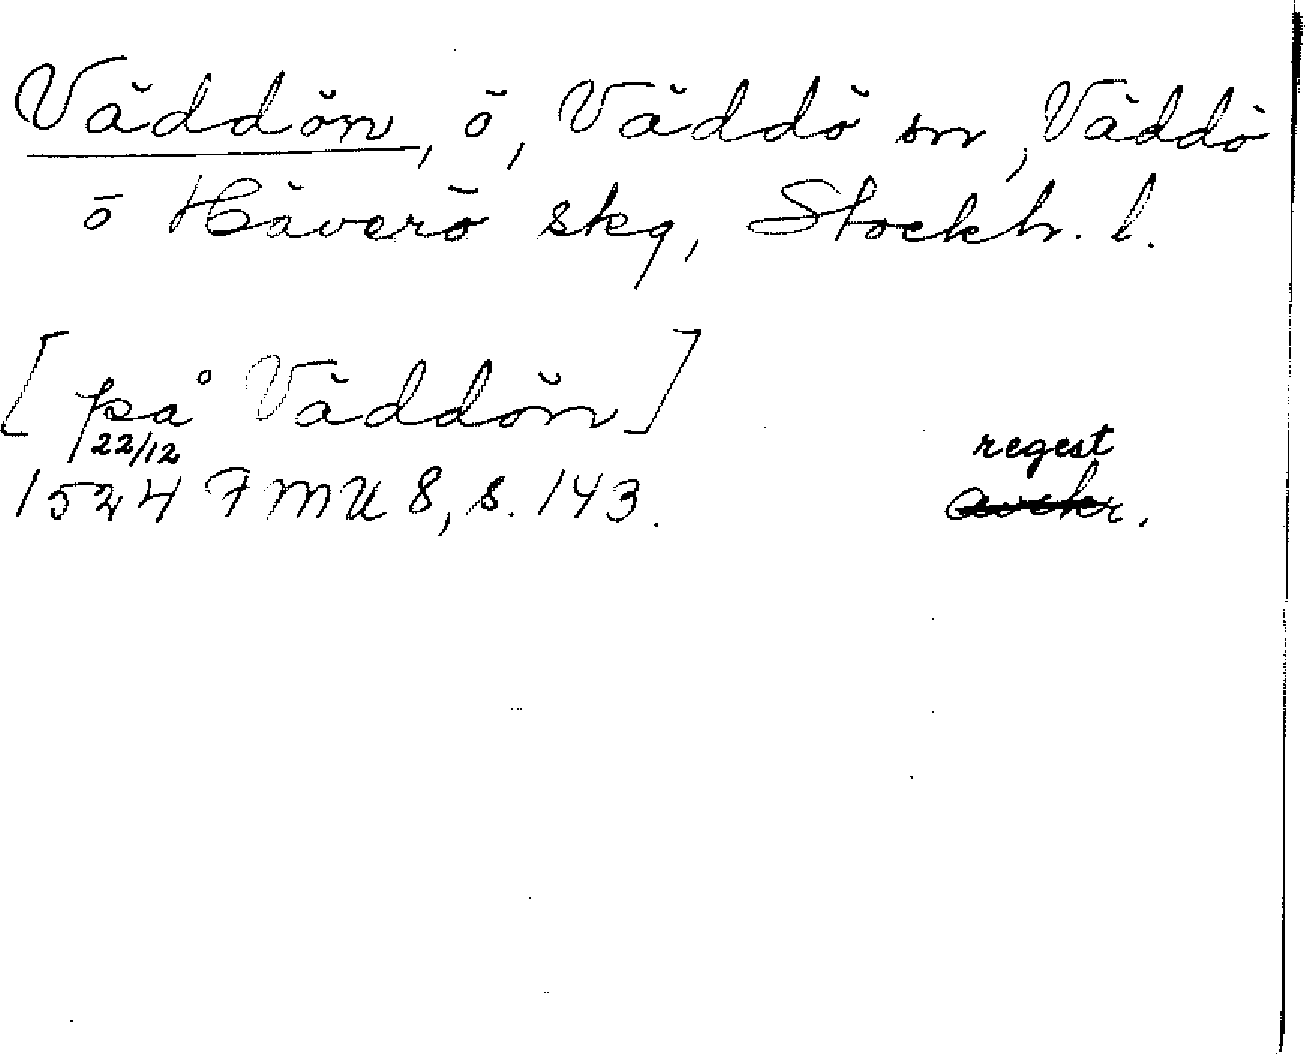 Väddön, ö, Väddö sn, Väddö
o Häverö skg, Stockh. l.
[på Väddön]
22/12 regest
1524 FMU 8, s. 143. avskr.